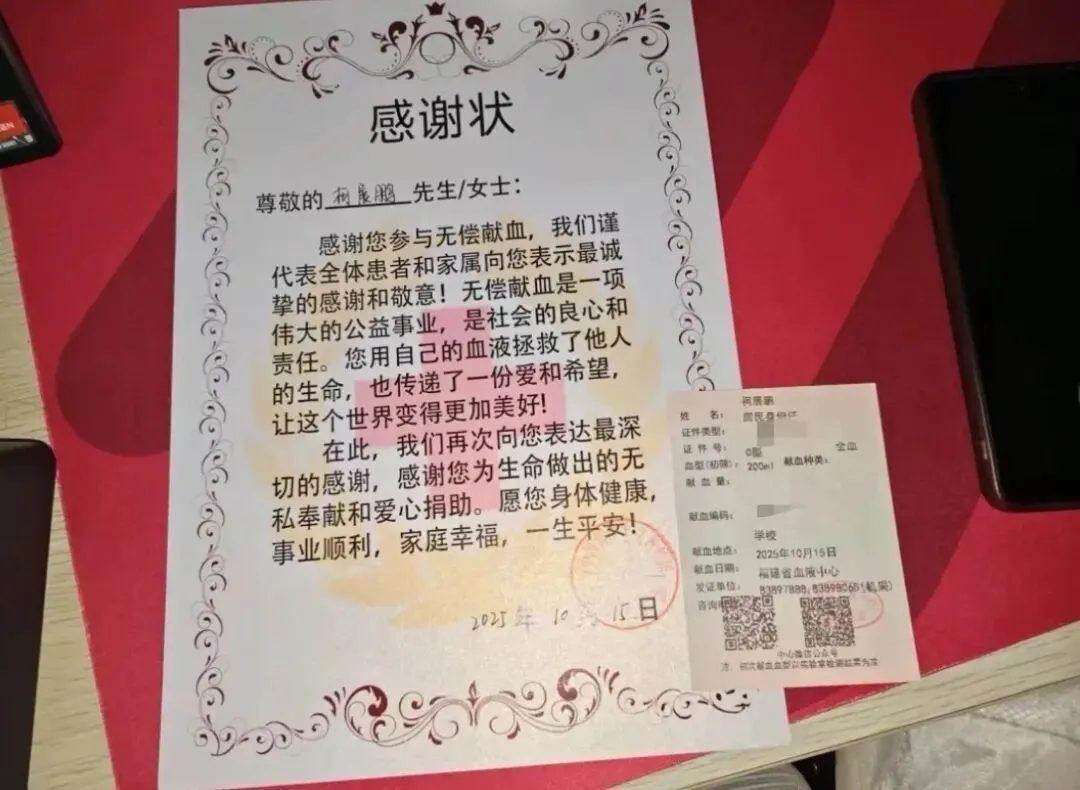 感谢状
尊敬的 柯展鹏 先生/女士：
感谢您参与无偿献血，我们谨
代表全体患者和家属向您表示最诚
挚的感谢和敬意！无偿献血是一项
伟大的公益事业，是社会的良心和
责任。您用自己的血液拯救了他人
的生命，也传递了一份爱和希望，
让这个世界变得更加美好!
在此，我们再次向您表达最深
切的感谢，感谢您为生命做出的无
私奉献和爱心捐助。愿您身体健康，
事业顺利，家庭幸福，一生平安！
2025年 10月 15日
姓 名： 柯展鹏
证件类型： 居民身份证
证 件 号：
血型(初筛)： O型 献血种类： 全血
献 血 量： 200ml
献血编码：
献血地点： 学校
献血日期： 2025年10月15日
发证单位： 福建省血液中心
83897888,83898065(机采)
中心微信公众号
注：初次献血血型以实验室检测结果为准